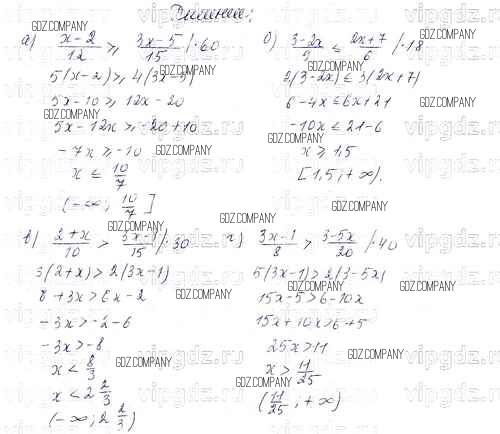 Решение:
а) (x-2)/12 ≥ (3x-5)/15 /·60
5(x-2) ≥ 4(3x-5)
5x-10 ≥ 12x-20
5x-12x ≥ -20+10
-7x ≥ -10
x ≤ 10/7
(-∞; 10/7]
б) (3-2x)/9 ≤ (2x+7)/6 /·18
2(3-2x) ≤ 3(2x+7)
6-4x ≤ 6x+21
-10x ≤ 21-6
x ≥ 1,5
[1,5; +∞).
в) (2+x)/10 > (3x-1)/15 /·30
3(2+x) > 2(3x-1)
6+3x > 6x-2
-3x > -2-6
-3x > -8
x < 8/3
x < 2 2/3
(-∞; 2 2/3)
г) (3x-1)/8 > (3-5x)/20 /·40
5(3x-1) > 2(3-5x)
15x-5 > 6-10x
15x+10x > 6+5
25x > 11
x > 11/25
(11/25; +∞)
GDZ.COMPANY
vipgdz.ru